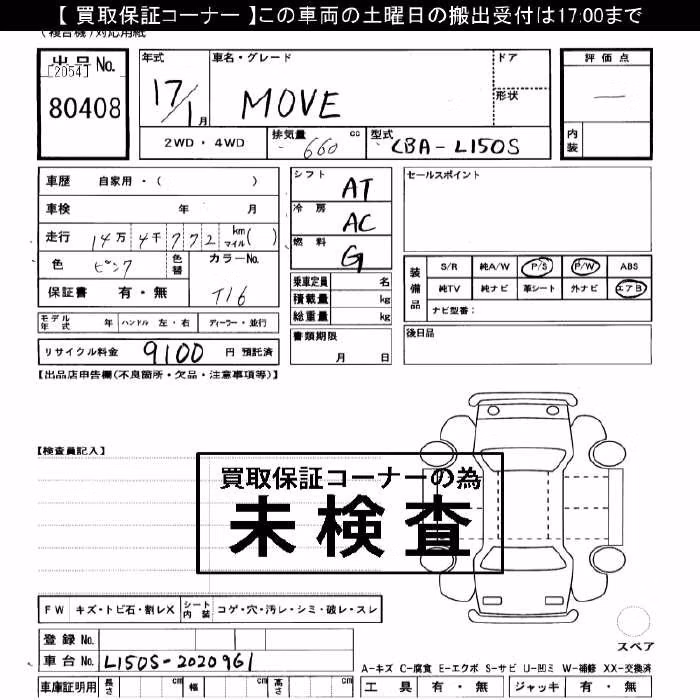 【 買取保証コーナー 】この車両の土曜日の搬出受付は17:00まで
(複合機)対応用紙
出品No.
[2054]
80408
年式
17/1月
車名・グレード
MOVE
ドア
形状
評価点
—
内装
2WD・4WD
排気量 660 cc
型式 CBA-L150S
車歴 自家用・( )
車検 年 月
走行 14万 4千 7 7 2 km マイル ( )
色 ピンク
色替
カラーNo.
T16
保証書 有・無
シフト AT
冷房 AC
燃料 G
乗車定員 名
積載量 kg
総重量 kg
セールスポイント
装備品
S/R 純A/W P/S P/W ABS
純TV 純ナビ 革シート 外ナビ エアB
ナビ型番:
モデル年式 年 ハンドル 左・右 ディーラー・並行
書類期限
月 日
後日品
リサイクル料金 9100 円 預託済
【出品店申告欄(不良箇所・欠品・注意事項等)】
【検査員記入】
買取保証コーナーの為
未検査
FW キズ・トビ石・割レX シート内装 コゲ・穴・汚レ・シミ・破レ・スレ
登録No.
車台No. L150S-2020961
スペア
A-キズ C-腐食 E-エクボ S-サビ U-凹ミ W-補修 XX-交換済
車庫証明用 長さ cm 幅 cm 高さ cm
工具 有・無 ジャッキ 有・無